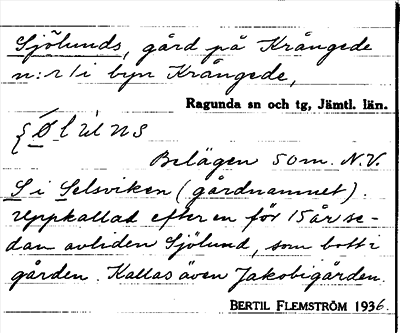 Sjölunds, gård på Krångede
n:r 1 i byn Krångede,
Ragunda sn och tg, Jämtl. län.
Belägen 50 m. N.V.
S i Selsviken (gårdnamnet).
Uppkallad efter en för 15 år se-
dan avliden Sjölund, som bott i
gården. Kallas även Jakobigården.
BERTIL FLEMSTRÖM 1936.